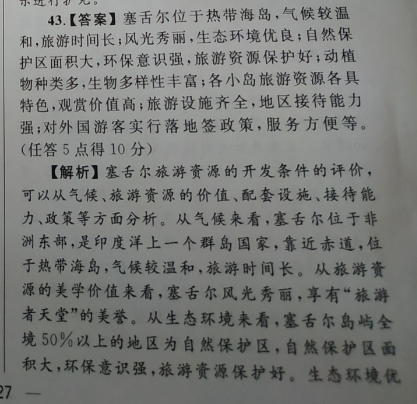 43.【答案】塞舌尔位于热带海岛,气候较温
和,旅游时间长;风光秀丽,生态环境优良;自然保
护区面积大,环保意识强,旅游资源保护好;动植
物种类多,生物多样性丰富;各小岛旅游资源各具
特色,观赏价值高;旅游设施齐全,地区接待能力
强;对外国游客实行落地签政策,服务方便等。
(任答5点得10分)
【解析】塞舌尔旅游资源的开发条件的评价,
可以从气候、旅游资源的价值、配套设施、接待能
力、政策等方面分析。从气候来看,塞舌尔位于非
洲东部,是印度洋上一个群岛国家,靠近赤道,位
于热带海岛,气候较温和,旅游时间长。从旅游资
源的美学价值来看,塞舌尔风光秀丽,享有“旅游
者天堂”的美誉。从生态环境来看,塞舌尔岛屿全
境50%以上的地区为自然保护区,自然保护区面
积大,环保意识强,旅游资源保护好。生态环境优
27 —